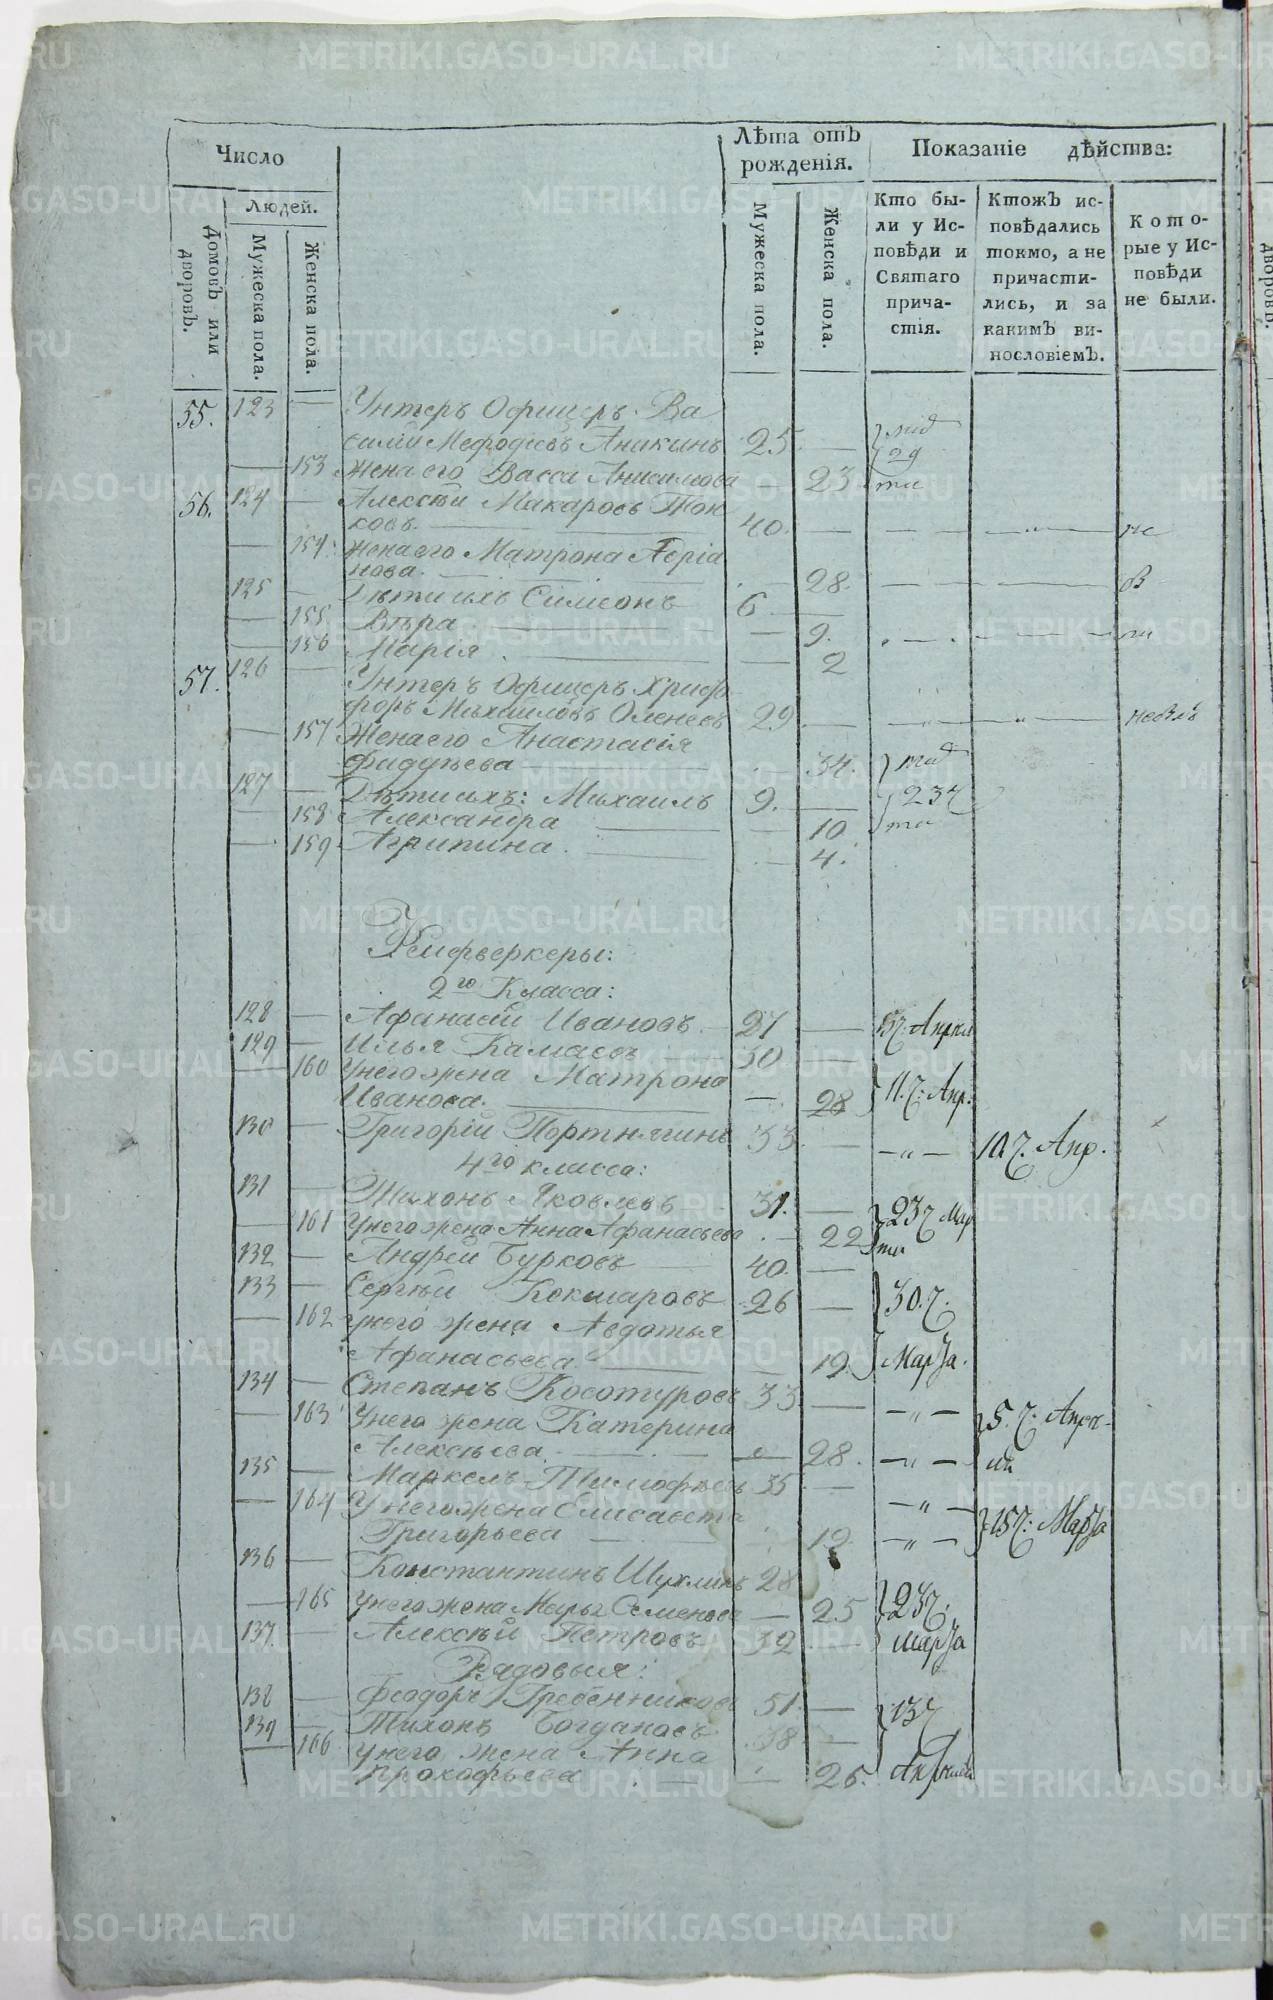 Число
Людей.
Домовъ или дворовъ.
Мужеска пола.
Женска пола.
Лѣта отъ рожденія.
Мужеска пола.
Женска пола.
Показаніе дѣйства:
Кто бы-
ли у Ис-
повѣди и
Святаго
прича-
стія.
Ктожъ ис-
повѣдались
токмо, а не
причасти-
лись, и за
какимъ ви-
нословіемъ.
Кото-
рые у Ис-
повѣди
не были.
55. 123 — Унтеръ Офицеръ Ва
силій Мефодіевъ Аникинъ 25 —
— 153 жена его Васса Анисимова — 23
56. 124 — Алексѣй Макаровъ Тон
ковъ — 40. — — — не
— 154 жена его Матрона Аеріа
нова. — 28. — — в
125 — Дѣти ихъ Симеонъ 6. —
— 155 Вѣра — 9.
— 156 Марія — 2
57. 126 — Унтеръ Офицеръ Христо
форъ Михаиловъ Оленевъ 29 —
— 157 Жена его Анастасія
Фадѣева — 34.
127 — Дѣти ихъ: Михаилъ 9. — 23 ч
— 158 Александра — 10
— 159 Агрипина. — 4.
Фейфверкеры:
2го Класса:
128 — Афанасій Ивановъ — 27 — Апрѣл
129 — Илья Камаевъ 30 —
— 160 У него жена Матрона
Иванова. — 28 11. ч: Апр:
130 — Григорій Портнягинъ 33 — — „ — 10 ч. Апр.
4го класса:
131 — Тихонъ Яковлевъ 31. — 23 ч Мар
— 161 У него жена Анна Афанасьева — 22 та
132 — Андрей Бурковъ 40. —
133 — Сергѣй Кокшаровъ 26 — 30. ч.
— 162 у него жена Авдотья
Афанасьева. — 19. Марта.
134 — Степанъ Косотуровъ 33. — — „ —
— 163 У него жена Катерина 5. ч. Апрѣ-
Алексѣева. — 28. — „ — ля
135 — Маркелъ Тимофѣевъ 35 — — „ —
— 164 У него жена Елисавета 15 ч: Марта
Григорьева — 19. — „ —
136 — Константинъ Шухминъ 28
— 165 У него жена Марья Семенова — 25 23 ч.
137 — Алексѣй Петровъ 39 — марта
Рядовыя:
138 — Феодоръ Гребенниковъ 51. — 13 ч
139 — Тихонъ Богдановъ 38 —
— 166 у него жена Анна
Прокофьева — 25. Апрѣля
METRIKI.GASO-URAL.RU